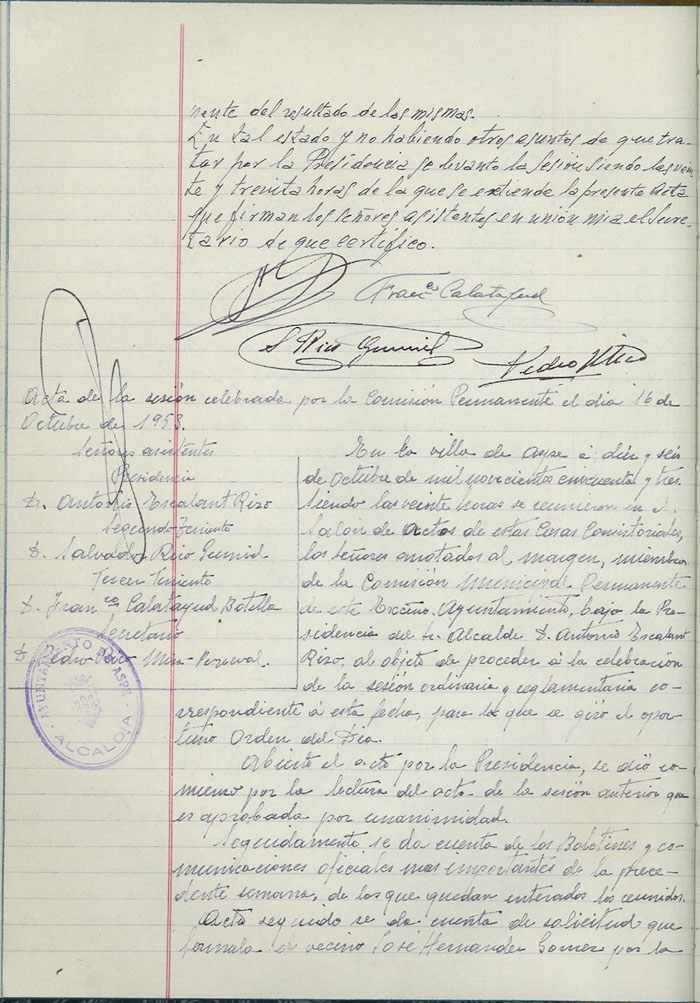 mente del resultado de las mismas.
En tal estado y no habiendo otros asuntos de que tra-
tar por la Presidencia se levanto la sesion siendo las vein-
te y treinta horas de la que se extiende la presente acta
que firman los señores asistentes en unión mia el Secre-
tario de que certifico.
Franco Calatayud
S Rico Gumiel
Pedro
Acta de la sesión celebrada por la Comisión Permanente el dia 16 de
Octubre de 1953.
Señores asistentes
Presidencia
D. Antonio Escalant Rizo
Segundo Teniente
D. Salvador Rico Gumiel
Tercer Teniente
D. Franco Calatayud Botella
Secretario
D. Pedro
AYUNTAMIENTO DE ASPE
ALCALDIA
En la villa de Aspe á diez y seis
de Octubre de mil novecientos cincuenta y tres
siendo las veinte horas se reunieron en el
Salón de actos de estas Casas Consistoriales,
los señores anotados al margen, miembros
de la Comisión Municipal Permanente
de este Excmo. Ayuntamiento, bajo la Pre-
sidencia del Sr. Alcalde D. Antonio Escalant
Rizo, al objeto de proceder á la celebración
de la sesión ordinaria y reglamentaria co-
rrespondiente á esta fecha, para la que se giró el opor-
tuno Orden del Dia.
Abierto el acto por la Presidencia, se dió co-
mienzo por la lectura del acta de la sesión anterior que
es aprobada por unanimidad.
Seguidamente se da cuenta de los Boletines y co-
municaciones oficiales mas importantes de la prece-
dente semana, de los que quedan enterados los reunidos.
Acto seguido se da cuenta de solicitud que
formula el vecino José Hernandez Gomez por la